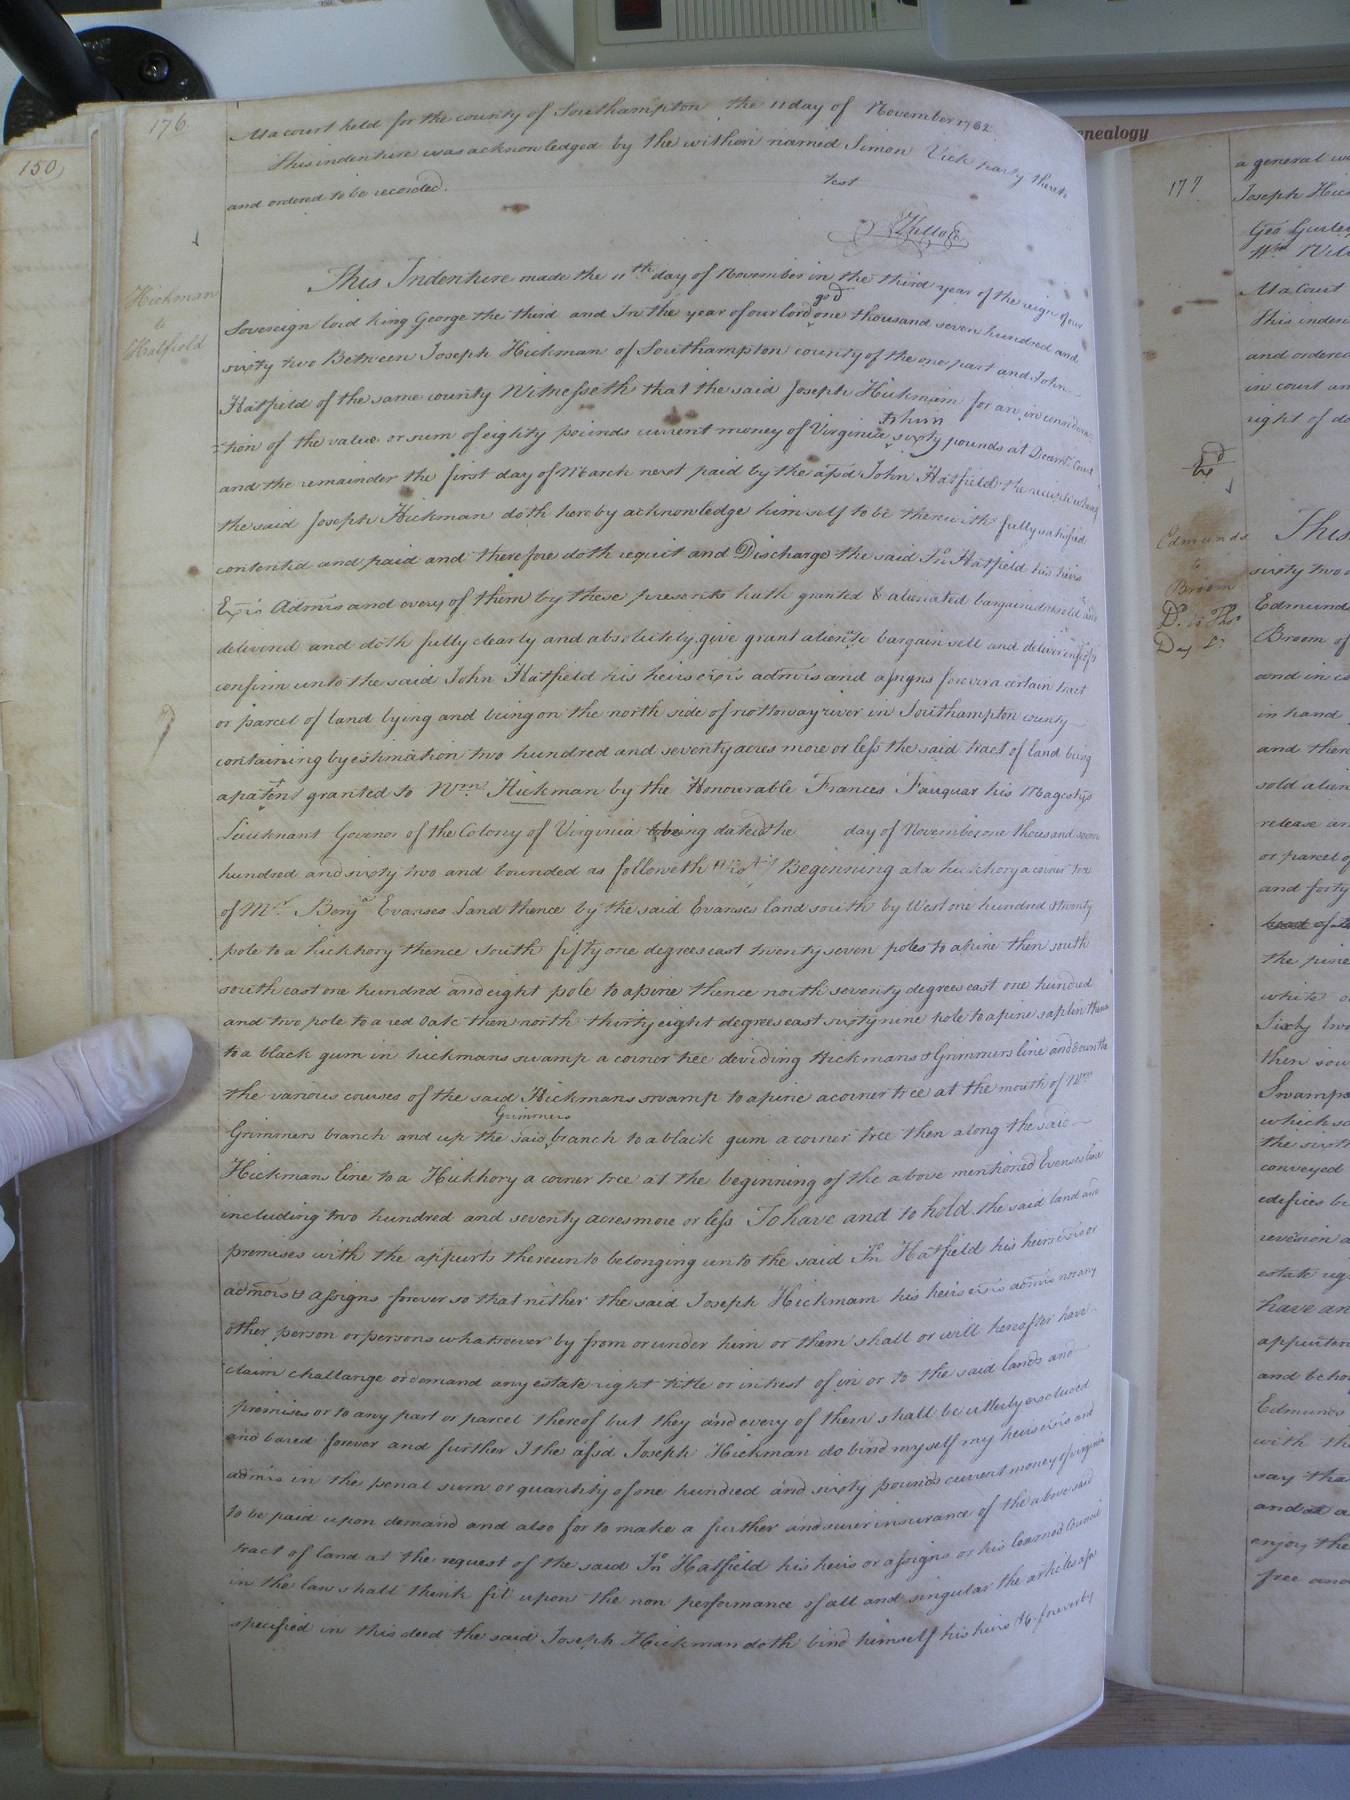 150
176
At a court held for the county of Southampton the 11 day of November 1762
This indenture was acknowledged by the within named Simon Vick party thereto
and ordered to be recorded.
test
Hickman
to
Hatfield
This Indenture made the 11th day of November in the third year of the reign of our
Sovereign lord king George the third and In the year of our lord god one thousand seven hundred and
sixty two Between Joseph Hickman of Southampton county of the one part and John
Hatfield of the same county Witnesseth that the said Joseph Hickman for an in considera-
-tion of the value or sum of eighty pounds current money of Virginia to him sixty pounds at Decemr. Court
and the remainder the first day of March next paid by the afsd John Hatfield the receipt whereof
the said Joseph Hickman doth hereby acknowledge himself to be therewith fully satisfied
contented and paid and therefore doth requit and Discharge the said Jno Hatfield his heirs
Exrs Admrs and every of them by these presents hath granted & alienated bargained sold and
delivered and doth fully clearly and absolutely give grant alienate bargain sell and deliver
confirm unto the said John Hatfield his heirs exrs admrs and assigns forever a certain tract
or parcel of land lying and being on the north side of nottoway river in Southampton county
containing by estimation two hundred and seventy acres more or less the said tract of land being
a patent granted to Wm. Hickman by the Honourable Frances Fauquar his Magestys
Lieutenant Governor of the Colony of Virginia being dated the day of November one thousand seven
hundred and sixty two and bounded as followeth Beginning at a hickhory a corner tree
of Mr. Benja Evanses Land thence by the said Evanses land south by West one hundred & twenty
pole to a hickhory thence South fifty one degrees east twenty seven poles to a pine then south
south east one hundred and eight pole to a pine thence north seventy degrees east one hundred
and two pole to a red Oak then north thirty eight degrees east sixty nine pole to a pine saplin thence
to a black gum in hickmans swamp a corner tree deviding Hickmans & Grimmers line and down the
the various courses of the said Hickmans swamp to a pine a corner tree at the mouth of Wm
Grimmers branch and up the said Grimmers branch to a black gum a corner tree then along the said
Hickmans line to a Hickhory a corner tree at the beginning of the above mentioned Evenses line
including two hundred and seventy acres more or less To have and to hold the said land and
premises with the appurts thereunto belonging unto the said Jno Hatfield his heirs exrs or
admors & assigns forever so that nither the said Joseph Hickmam his heirs exrs admrs nor any
other person or persons whatsoever by from or under him or them shall or will hereafter have
claim challange or demand any estate right title or intrest of in or to the said lands and
premises or to any part or parcel thereof but they and every of them shall be utterly excluded
and bared forever and further I the afsd Joseph Hickman do bind my self my heirs exrs and
admrs in the penal sum or quantity of one hundred and sixty pounds current money of virginia
to be paid upon demand and also for to make a further and surer insurance of the above said
tract of land at the request of the said Jno Hatfield his heirs or assigns or his learned Council
in the law shall think fit upon the non performance of all and singular the articles afsd
specified in this deed the said Joseph Hickman doth bind himself his heirs &c forever by
enealogy
177
a general
Joseph Hick
Geo Gurley
At a Court
this inden
and ordered
in court an
right of do
Edmunds
to
Broom
This
sixty two
Edmunds
Broom of
and in co
in hand
and then
sold alien
release an
or parcel of
and forty
the pine
white o
Sixty two
then sou
Swamp
which sa
the sixth
conveyed
edifices
estate rig
have an
appurten
and beho
Edmunds
with th
say tha
enjoy the
free and